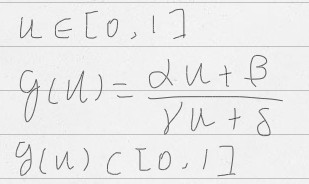 u ∈ [0, 1]
g(u) = (αu + β) / (γu + δ)
g(u) ⊂ [0, 1]